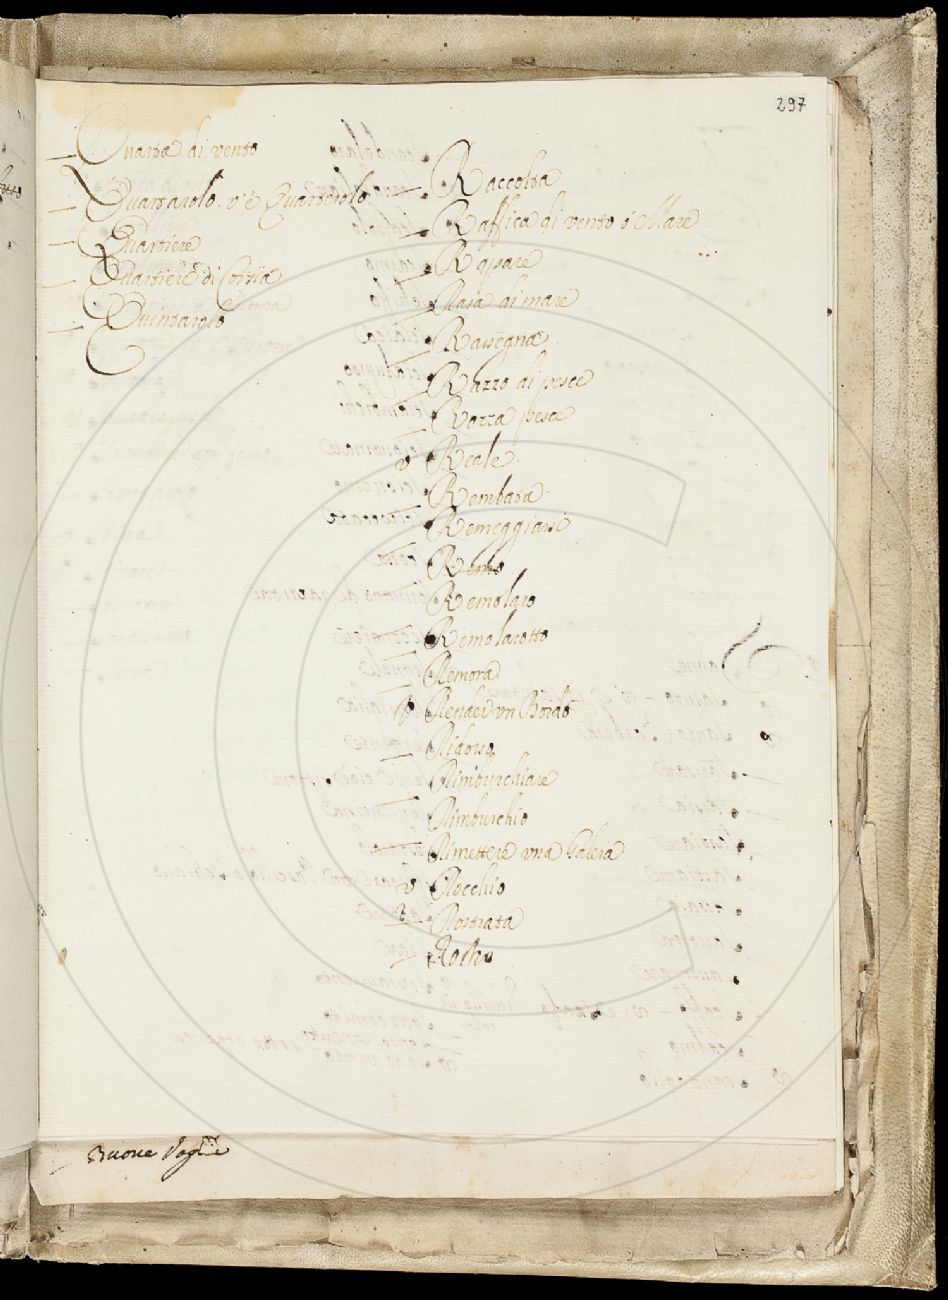 297
Quarta di vento
Quartarolo. v'è Quarterolo
Quartiere
Quartiere di Corsia
Quintarolo
Raccolta
Raffica di vento ò Mare
Rasa di mare
Rassegna
Razzo di pesce
Razza pesce
v Reale
Rembata
Remeggiare
Remo
Remolaro
Remolarotto
Remora
Render vn Bordo
Ridosso
Rimburchiare
Rimburchio
Rimettere vna Galera
v Rocchio
Rostrata
Buone Voglie